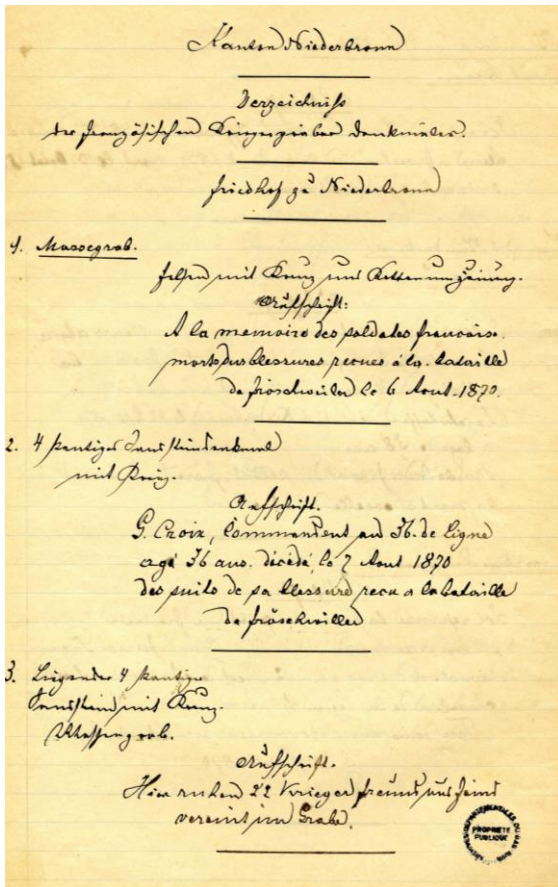 Kanton Niederbronn
Verzeichniß
der französischen Kriegergräber Denkmäler.
Friedhof zu Niederbronn
1. Massegrab.
Felsen mit Kreuz und Kettenumzäunung.
Aufschrift:
A la memoire des soldates francaise.
morts des blessures recues à la bataille
de Fröschweiler le 6 Aout. 1870.
2. 4 kantiges Sandsteindenkmal
mit Kreuz.
Aufschrift.
G. Croix, Commandent au 36. de Ligne
agé 36 ans. décédé le 7 Aout 1870
des suits de sa blessure recu a la bataille
de Fröschwiller
3. Liegender 4 kantiger
Sandstein mit Kreuz.
Massengrab.
Aufschrift.
Hier ruhen 22 Krieger Freund und Feind
vereint im Grabe.
PROPRIETE
PUBLIQUE